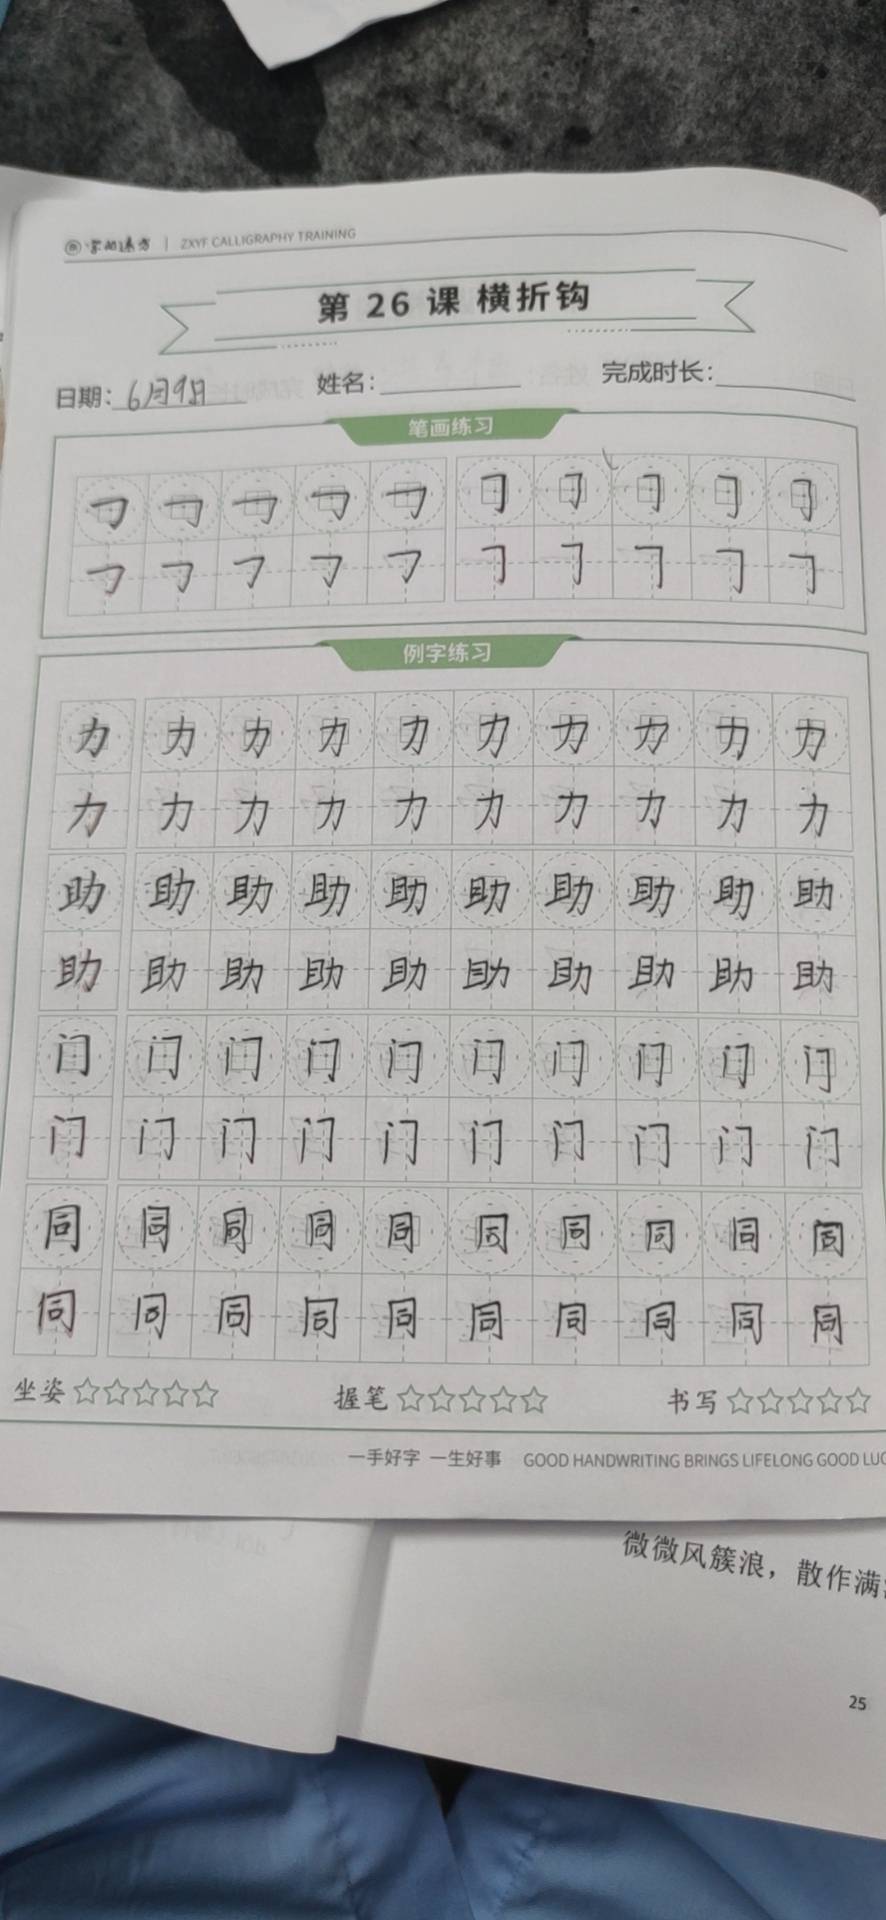 字如远方 | ZXYF CALLIGRAPHY TRAINING
第 26 课 横折钩
日期: 6月9日 姓名: 完成时长:
笔画练习
例字练习
力 力 力 力 力 力 力 力 力 力
力 力 力 力 力 力 力 力 力 力
助 助 助 助 助 助 助 助 助 助
助 助 助 助 助 助 助 助 助 助
门 门 门 门 门 门 门 门 门 门
门 门 门 门 门 门 门 门 门 门
同 同 同 同 同 同 同 同 同 同
同 同 同 同 同 同 同 同 同 同
坐姿 ☆☆☆☆☆ 握笔 ☆☆☆☆☆ 书写 ☆☆☆☆☆
一手好字 一生好事 GOOD HANDWRITING BRINGS LIFELONG GOOD LUC
微微风簇浪，散作满
25